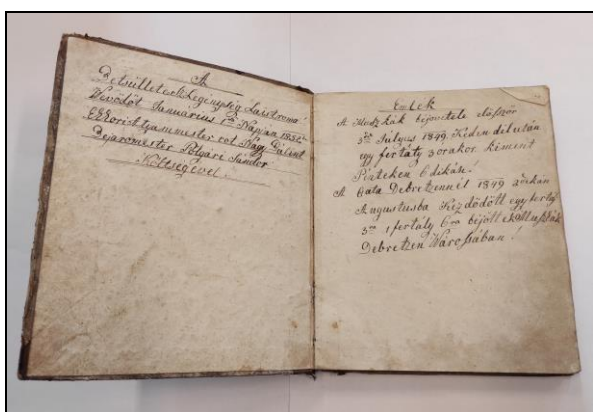 A
Betsülletes Legénység Laistroma
Vevődöt Januarius 1ső Napján 1852
Ekkoris tzéhmmester vót Nagy Bálint
Bejárómester Polgári Sándor
Költségével.
Em-lék
A Muszkák bejövetele először
3ik Julyus 1849. Kedden délután
egy fertály 3 orakor kiment
Pénteken 6dikán!
A Csata Debretzennél 1849 2dikán
Augustusba Kezdődött egy fertály
3ra 1 fertály 6ra bejöttek a Muszkák
Debretzen Várossában!